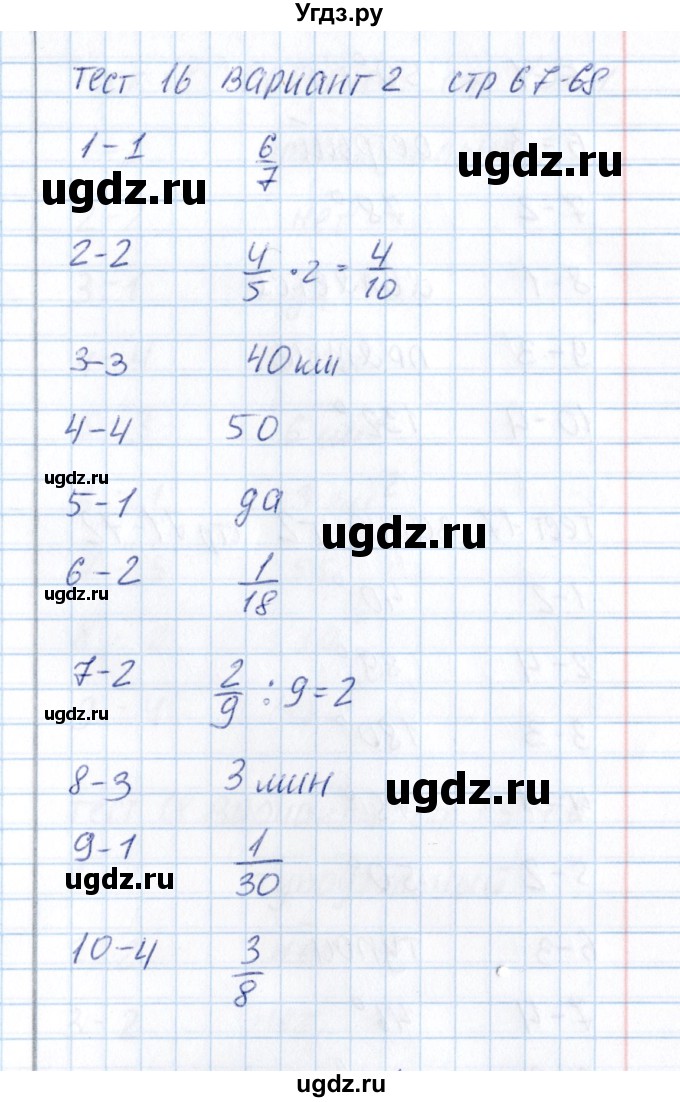 Угдз.ру
тест 16 вариант 2 стр 67-68
1-1 6/7
ugdz.ru
ugdz.ru
2-2 4/5 · 2 = 4/10
3-3 40 км
4-4 50
ugdz.ru
5-1 да
ugdz.ru
6-2 1/18
ugdz.ru
7-2 2/9 : 9 = 2
ugdz.ru
8-3 3 мин
ugdz.ru
9-1 1/30
ugdz.ru
10-4 3/8
ugdz.ru